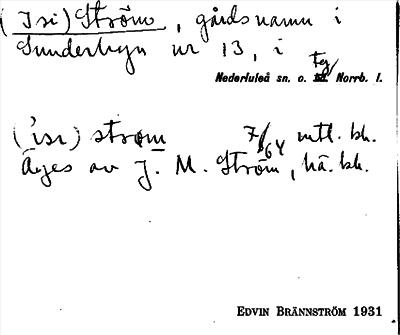 (Isi) Ström, gårdsnamn i
Sunderbyn nr 13, i
Nederluleå sn. o. tg Norrb. l.
('isi) strøm 7/6 64 mtl. bk.
Äges av J. M. Ström, hä. bk.
EDVIN BRÄNNSTRÖM 1931